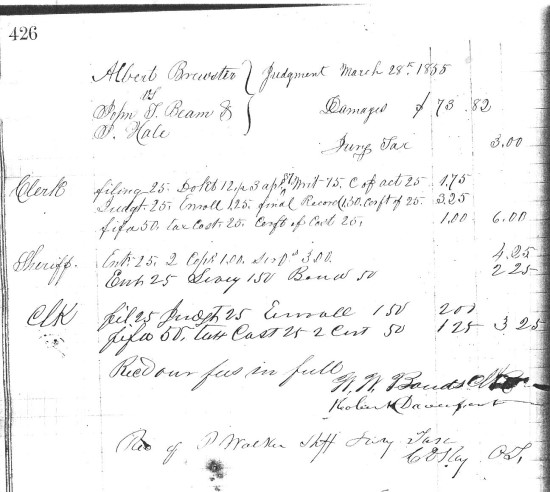 426
Albert Brewster } Judgment March 28th 1855
vs
John T. Beam & Damages $ 73.82
T. Hale
Jury Tax 3.00
Clerk filing 25. Dokt 12½ 3 aps 37½ Writ 75. C of act 25 1.75
Judgt 25. Enroll 1.25. final Record 1.50. Cerft of 25. 3.25
fifa 50. tax Cost. 25. Cerft of Cost 25. 1.00 6.00
Sheriff. Entr 25. 2 Cops 1.00. Serv 3.00. 4.25
Ent 25 Levy 150 Bond 50 2 25
Clk fil 25 Judgt 25 Enroll 150 200
fifa 50. tax Cost 25 2 Cert 50 1 25 3 25
Recd our fees in full
W. W. Bonds Clk
Robert Davenport
Rec of P Walker Shff Jury Tax